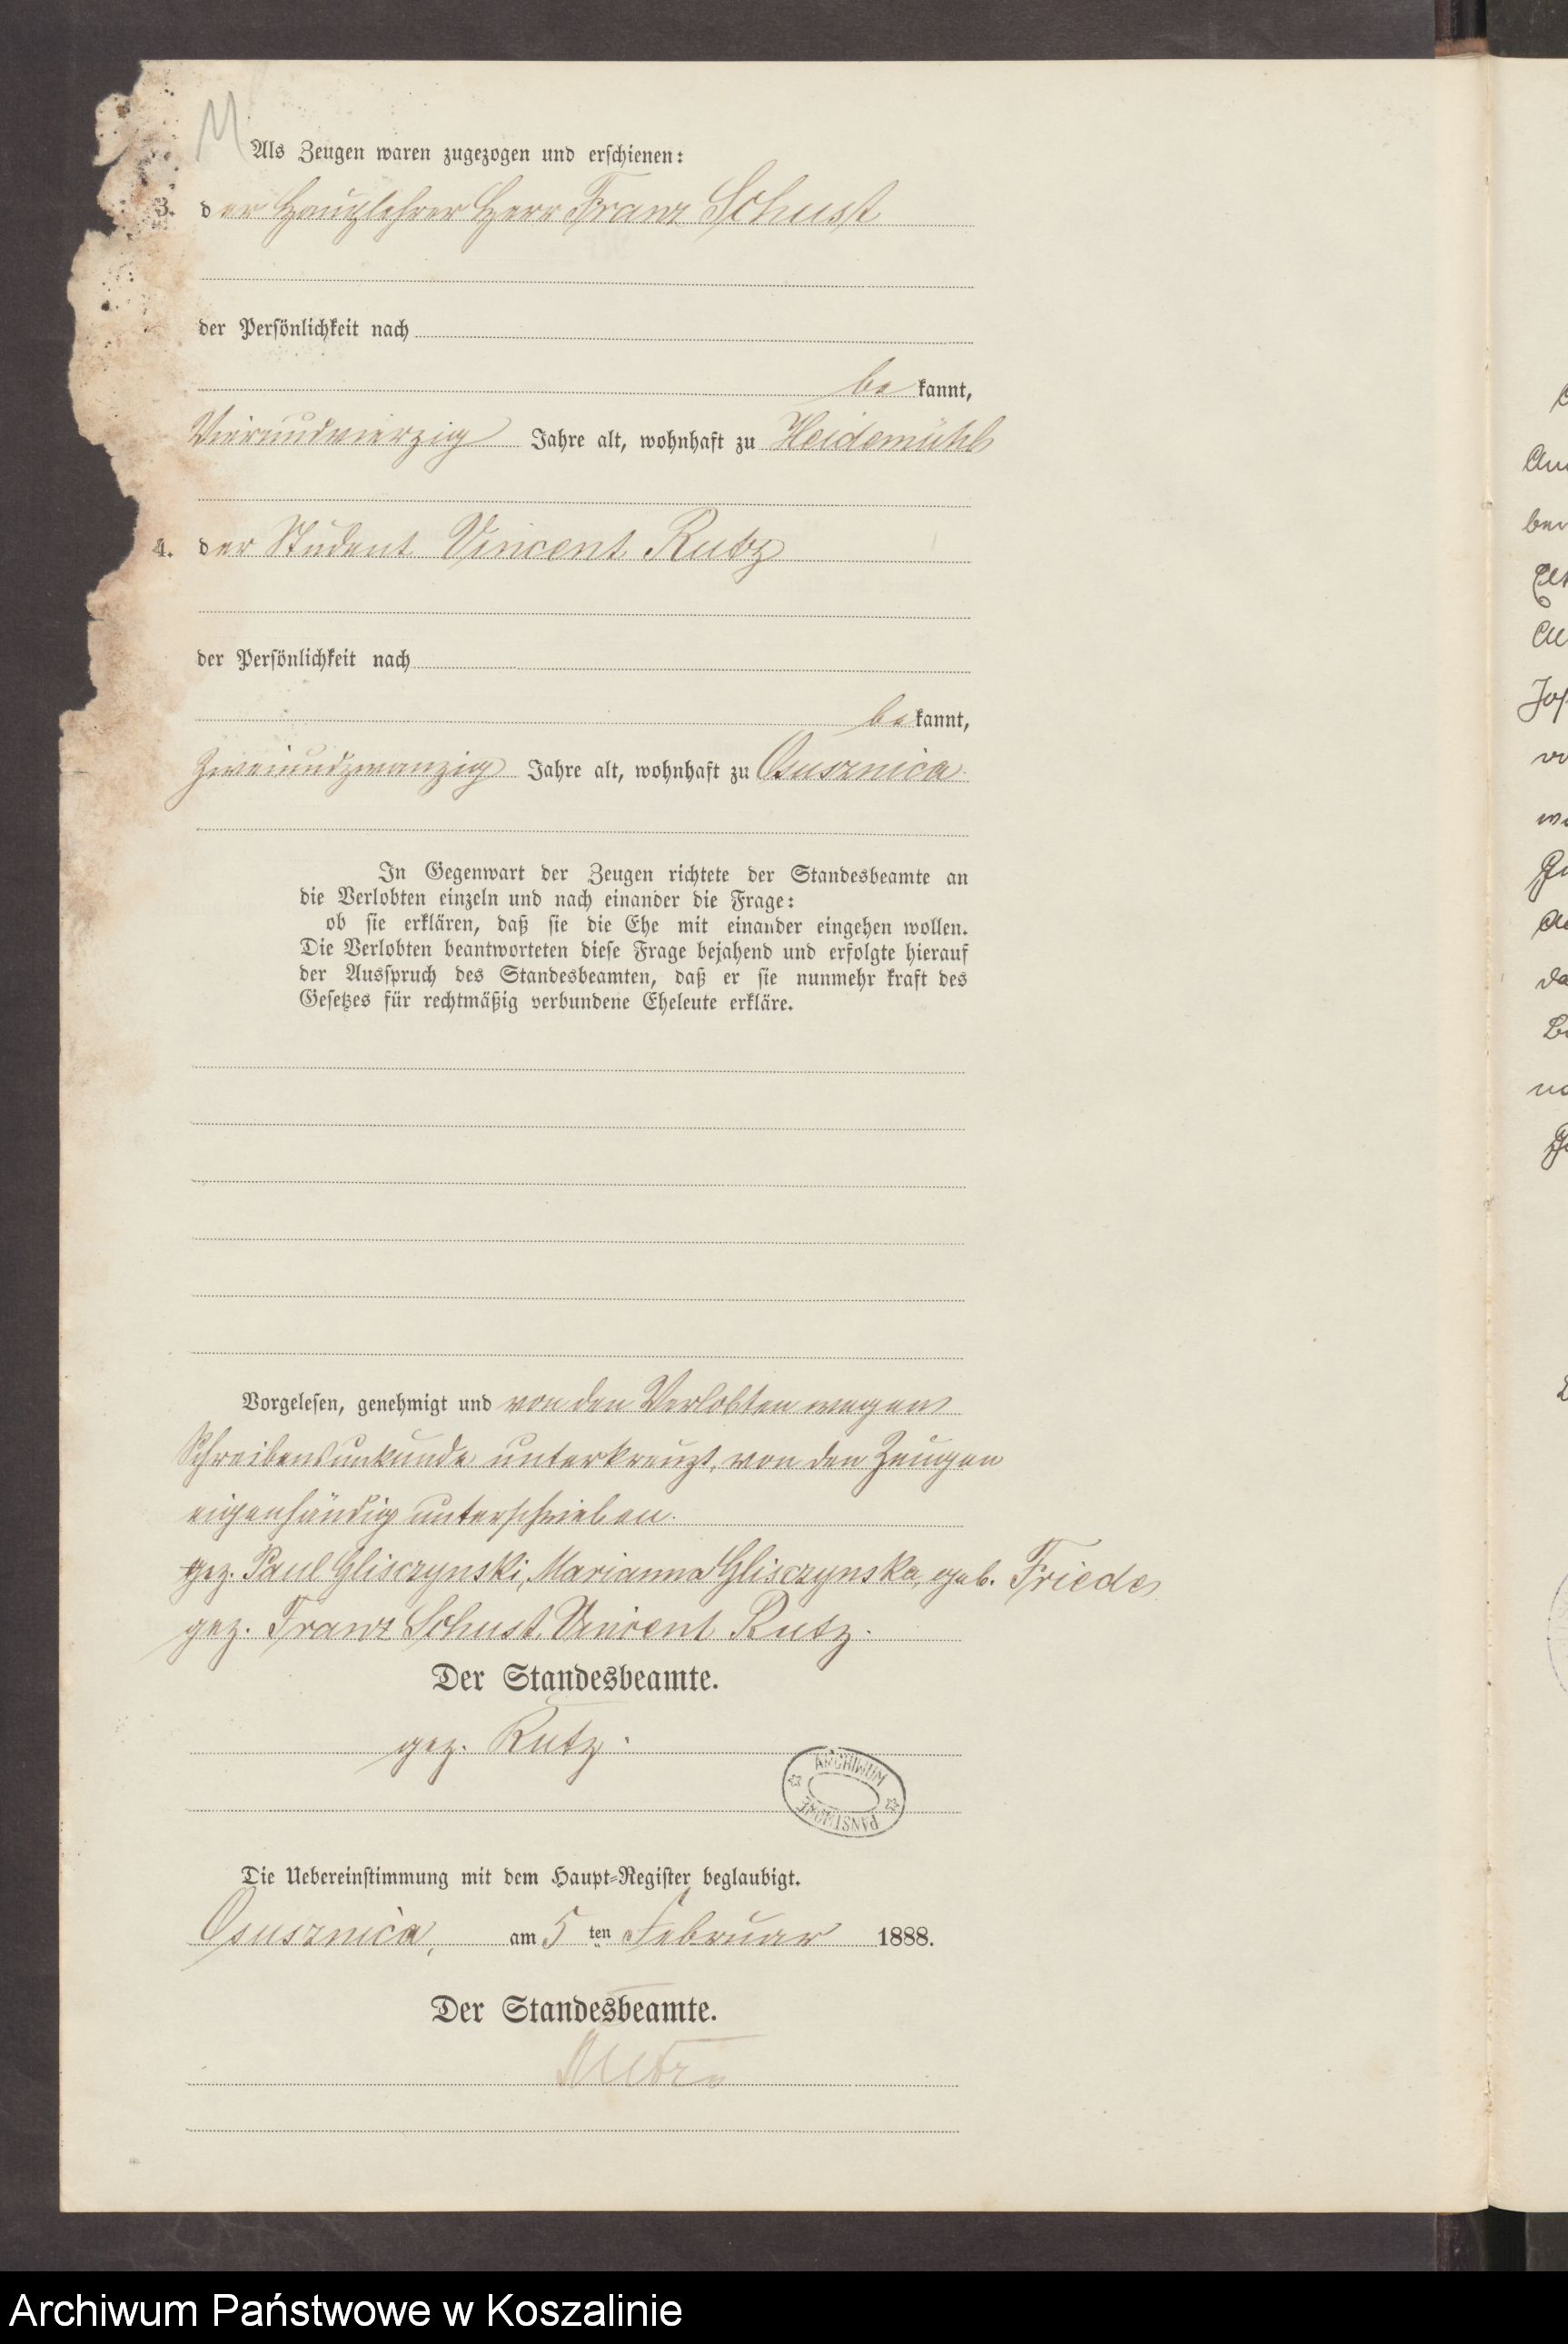 11
Als Zeugen waren zugezogen und erschienen:
3. der Hauptlehrer Herr Franz Schust
der Persönlichkeit nach
bekannt,
Vierundvierzig Jahre alt, wohnhaft zu Heidemühl
4. der Student Vincent Rutz
der Persönlichkeit nach
bekannt,
zweiundzwanzig Jahre alt, wohnhaft zu Osusznica
In Gegenwart der Zeugen richtete der Standesbeamte an
die Verlobten einzeln und nach einander die Frage:
ob sie erklären, daß sie die Ehe mit einander eingehen wollen.
Die Verlobten beantworteten diese Frage bejahend und erfolgte hierauf
der Ausspruch des Standesbeamten, daß er sie nunmehr kraft des
Gesetzes für rechtmäßig verbundene Eheleute erkläre.
Vorgelesen, genehmigt und von den Verlobten wegen
Schreibensunkunde unterkreuzt, von den Zeugen
eigenhändig unterschrieben.
gez. Paul Glisczynski, Marianna Glisczynska, geb. Friede
gez. Franz Schust. Vincent Rutz.
Der Standesbeamte.
gez. Rutz.
ARCHIWUM
PAŃSTWOWE
Die Uebereinstimmung mit dem Haupt-Register beglaubigt.
Osusznica, am 5 ten Februar 1888.
Der Standesbeamte.
Rutz
Archiwum Państwowe w Koszalinie